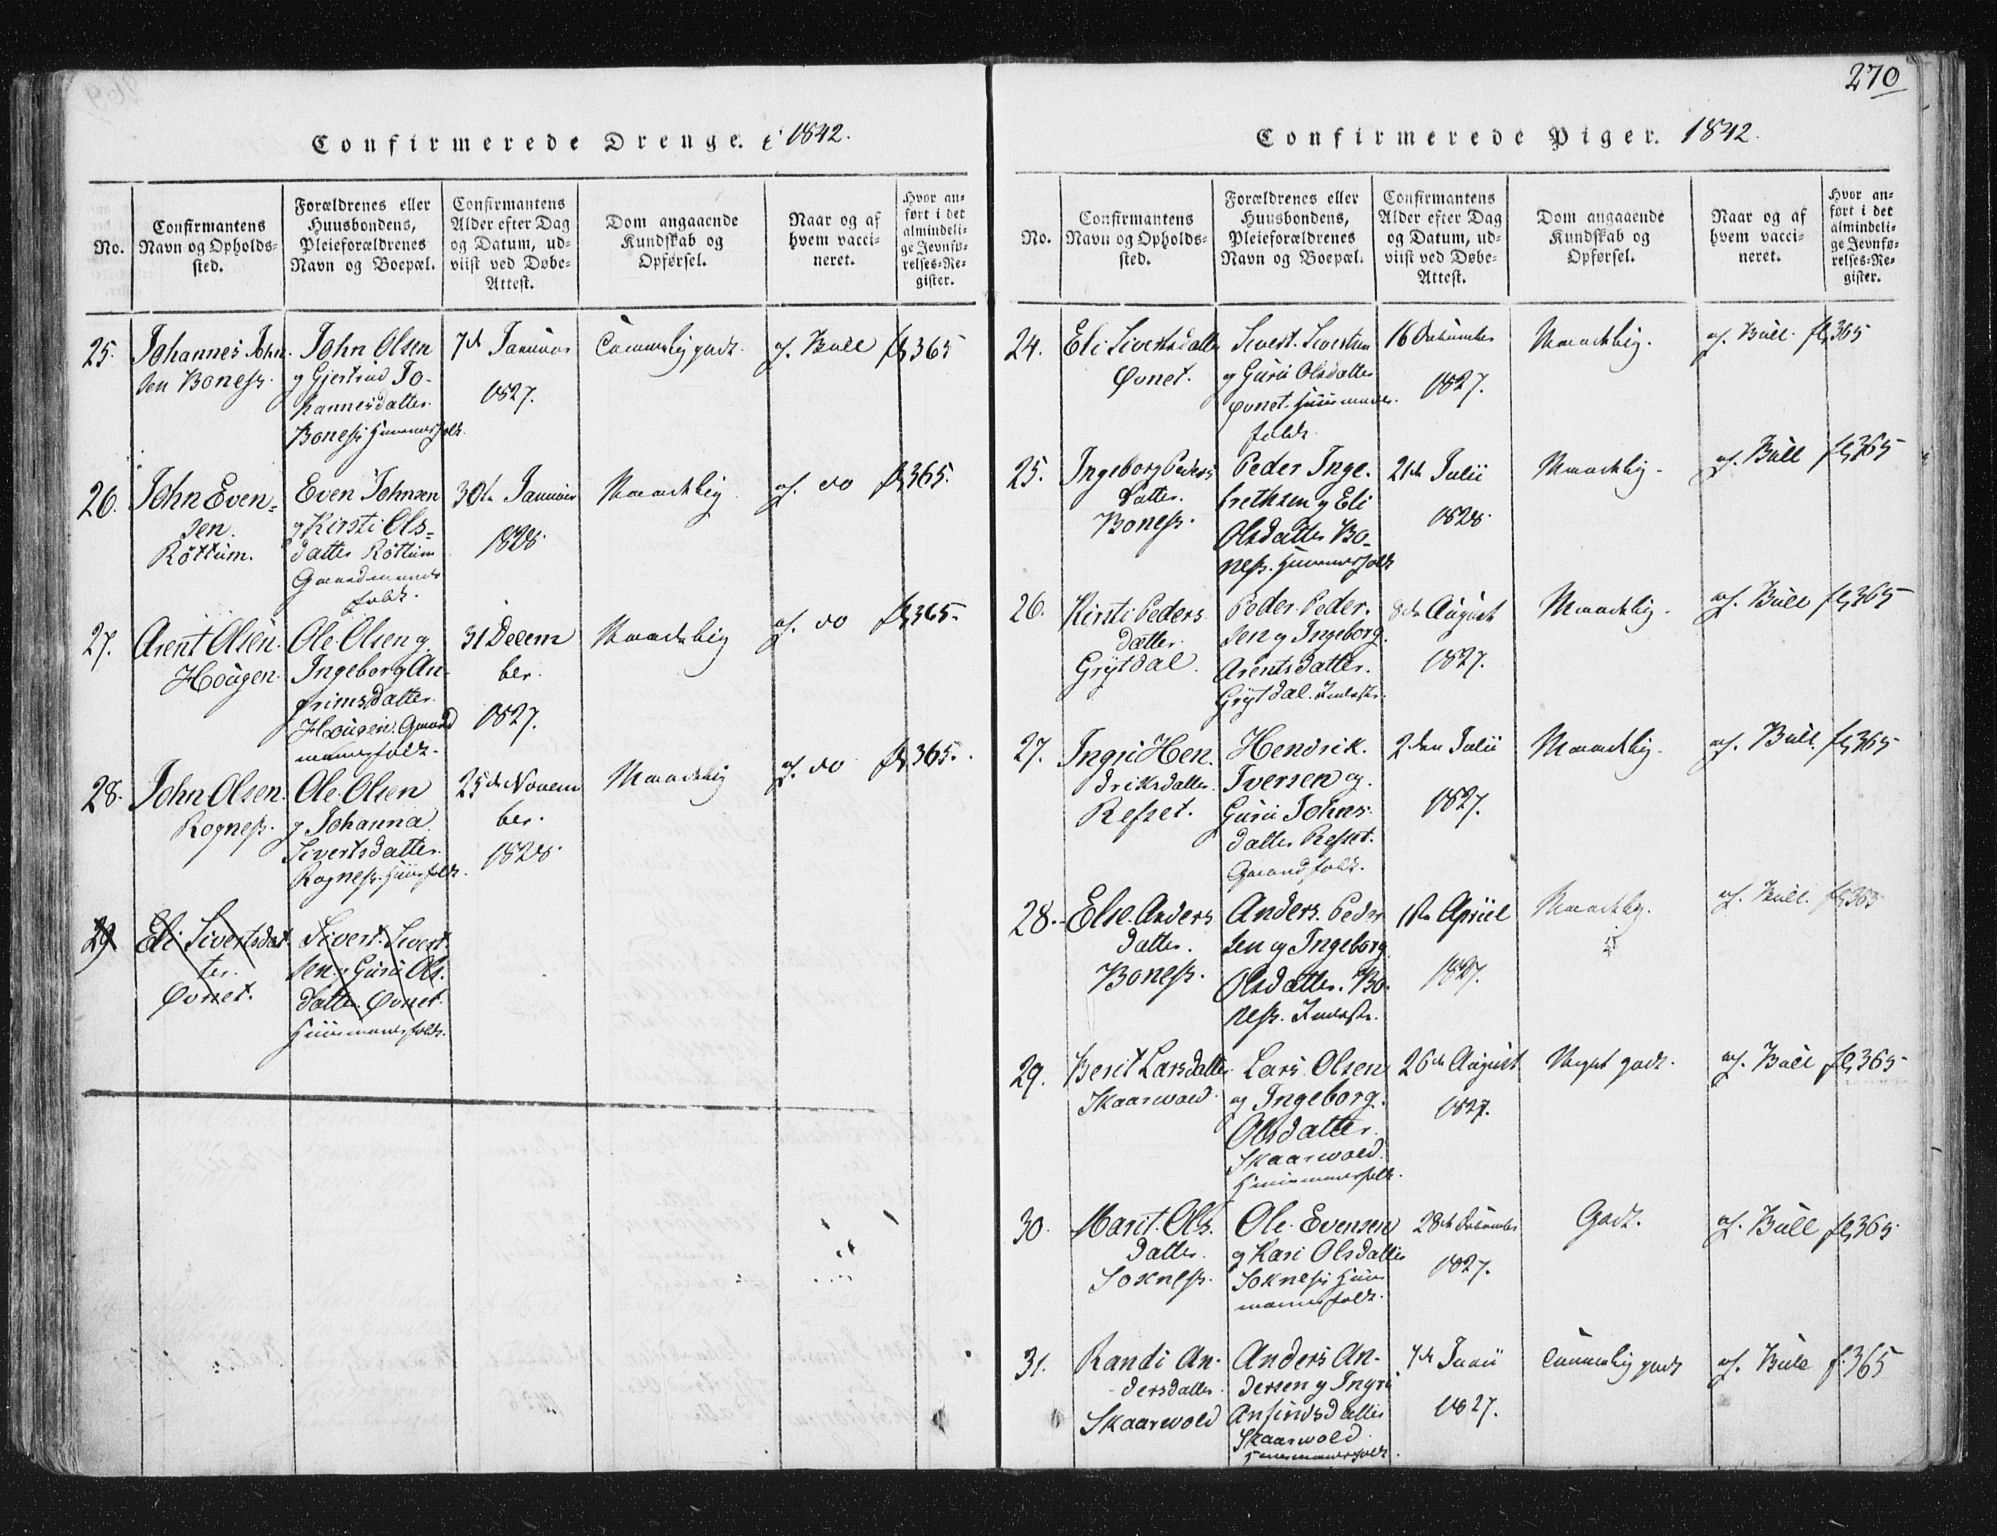 270
Confirmerede Drenge. i 1842.
No.
Confirmantens
Navn og Opholds-
sted.
Forældrenes eller
Huusbondens,
Pleieforældrenes
Navn og Boepæl.
Confirmantens
Alder efter Dag
og Datum, ud-
viist ved Døbe-
Attest.
Dom angaaende
Kundskab og
Opførsel.
Naar og af
hvem vacci-
neret.
Hvor an-
ført i det
almindeli-
ge Jevnfø-
relses-Re-
gister.
25.
Johannes John
sen Boness.
John Olsen
og Gjertrud Jo-
hannesdatter
Boness Huusmandsfolk.
7de Januar
1827.
Temmelig godt.
af. Bull
fol 365
26.
John Even-
sen.
Röttum.
Even Johnsen
og Kirsti Ols-
datter Röttum
Gaardmands
folk.
30te Januar
1828.
Maadelig
af. do
fol 365.
27.
Arent Olsen.
Hougen.
Ole Olsen og
Ingeborg An-
frimsdatter.
Hougen. Gaard
mandsfolk.
31 Decem
ber.
1827.
Maadelig
af. do
fol 365.
28.
John Olsen.
Rogness.
Ole Olsen
og Johanna
Sivertsdatter.
Rogness. Huusfolk.
25de Novem
ber.
1828.
Maadelig
af. do
fol 365.
29
Eli Sivertsdat
ter.
Qvnet.
Sivert. Sivert
sen og Guru Ols.
datter. Qvnet.
Huusmandsfolk.
Confirmerede Piger. 1842.
No.
Confirmantens
Navn og Opholds-
sted.
Forældrenes eller
Huusbondens,
Pleieforældrenes
Navn og Boepæl.
Confirmantens
Alder efter Dag
og Datum, ud-
viist ved Døbe-
Attest.
Dom angaaende
Kundskab og
Opførsel.
Naar og af
hvem vacci-
neret.
Hvor an-
ført i det
almindeli-
ge Jevnfø-
relses-Re-
gister.
24.
Eli Sivertsdatter
Qvnet.
Sivert. Sivertsen
og Guru Olsdatter
Qvnet. Huusmands.
folk.
16 December
1827.
Maadelig.
af. Bull.
fol 365
25.
Ingeborg Peders
datter.
Boness.
Peder Inge.
brethsen og Eli
Olsdatter Bo-
ness. Huusmandsfolk
21de Julii
1828.
Maadelig.
af. Bull
fol 365
26.
Kirsti Peders
datter.
Grytdal.
Peder. Peder.
sen og Ingeborg.
Arentsdatter.
Grytdal. Inderster.
8de August
1827.
Maadelig.
af. Bull
fol 365
27.
Ingri Hen.
driksdatter.
Resset.
Hendrik.
Iversen og.
Guru Johns.
datter Resset.
Gaardfolk.
2den Julii
1827.
Maadelig.
af. Bull.
fol 365
28.
Else. Anders
datter.
Boness.
Anders. Peder
sen og Ingeborg
Olsdatter. Bo.
ness. Inderster.
1ste Apriil
1827.
Maadelig.
af. Bull.
fol 365
29.
Berit Larsdatter.
Skaarwold.
Lars. Olsen
og Ingeborg.
Olsdatter.
Skaarwold.
Huusmandsfolk.
26de August
1827.
Meget godt.
af. Bull
fol 365
30.
Marit. Ols.
datter.
Soxness.
Ole. Evensen
og Kari Olsdatter
Sokness Huus
mandsfolk.
28de December
1827.
Godt.
af. Bull
fol 365
31.
Randi An.
dersdatter.
Skaarwold
Anders An-
dersen og Ingri
Anfindsdatter
Skaarwold.
Huusmandsfolk.
7de Junii
1827.
Temmelig godt
af. Bull
f. 365